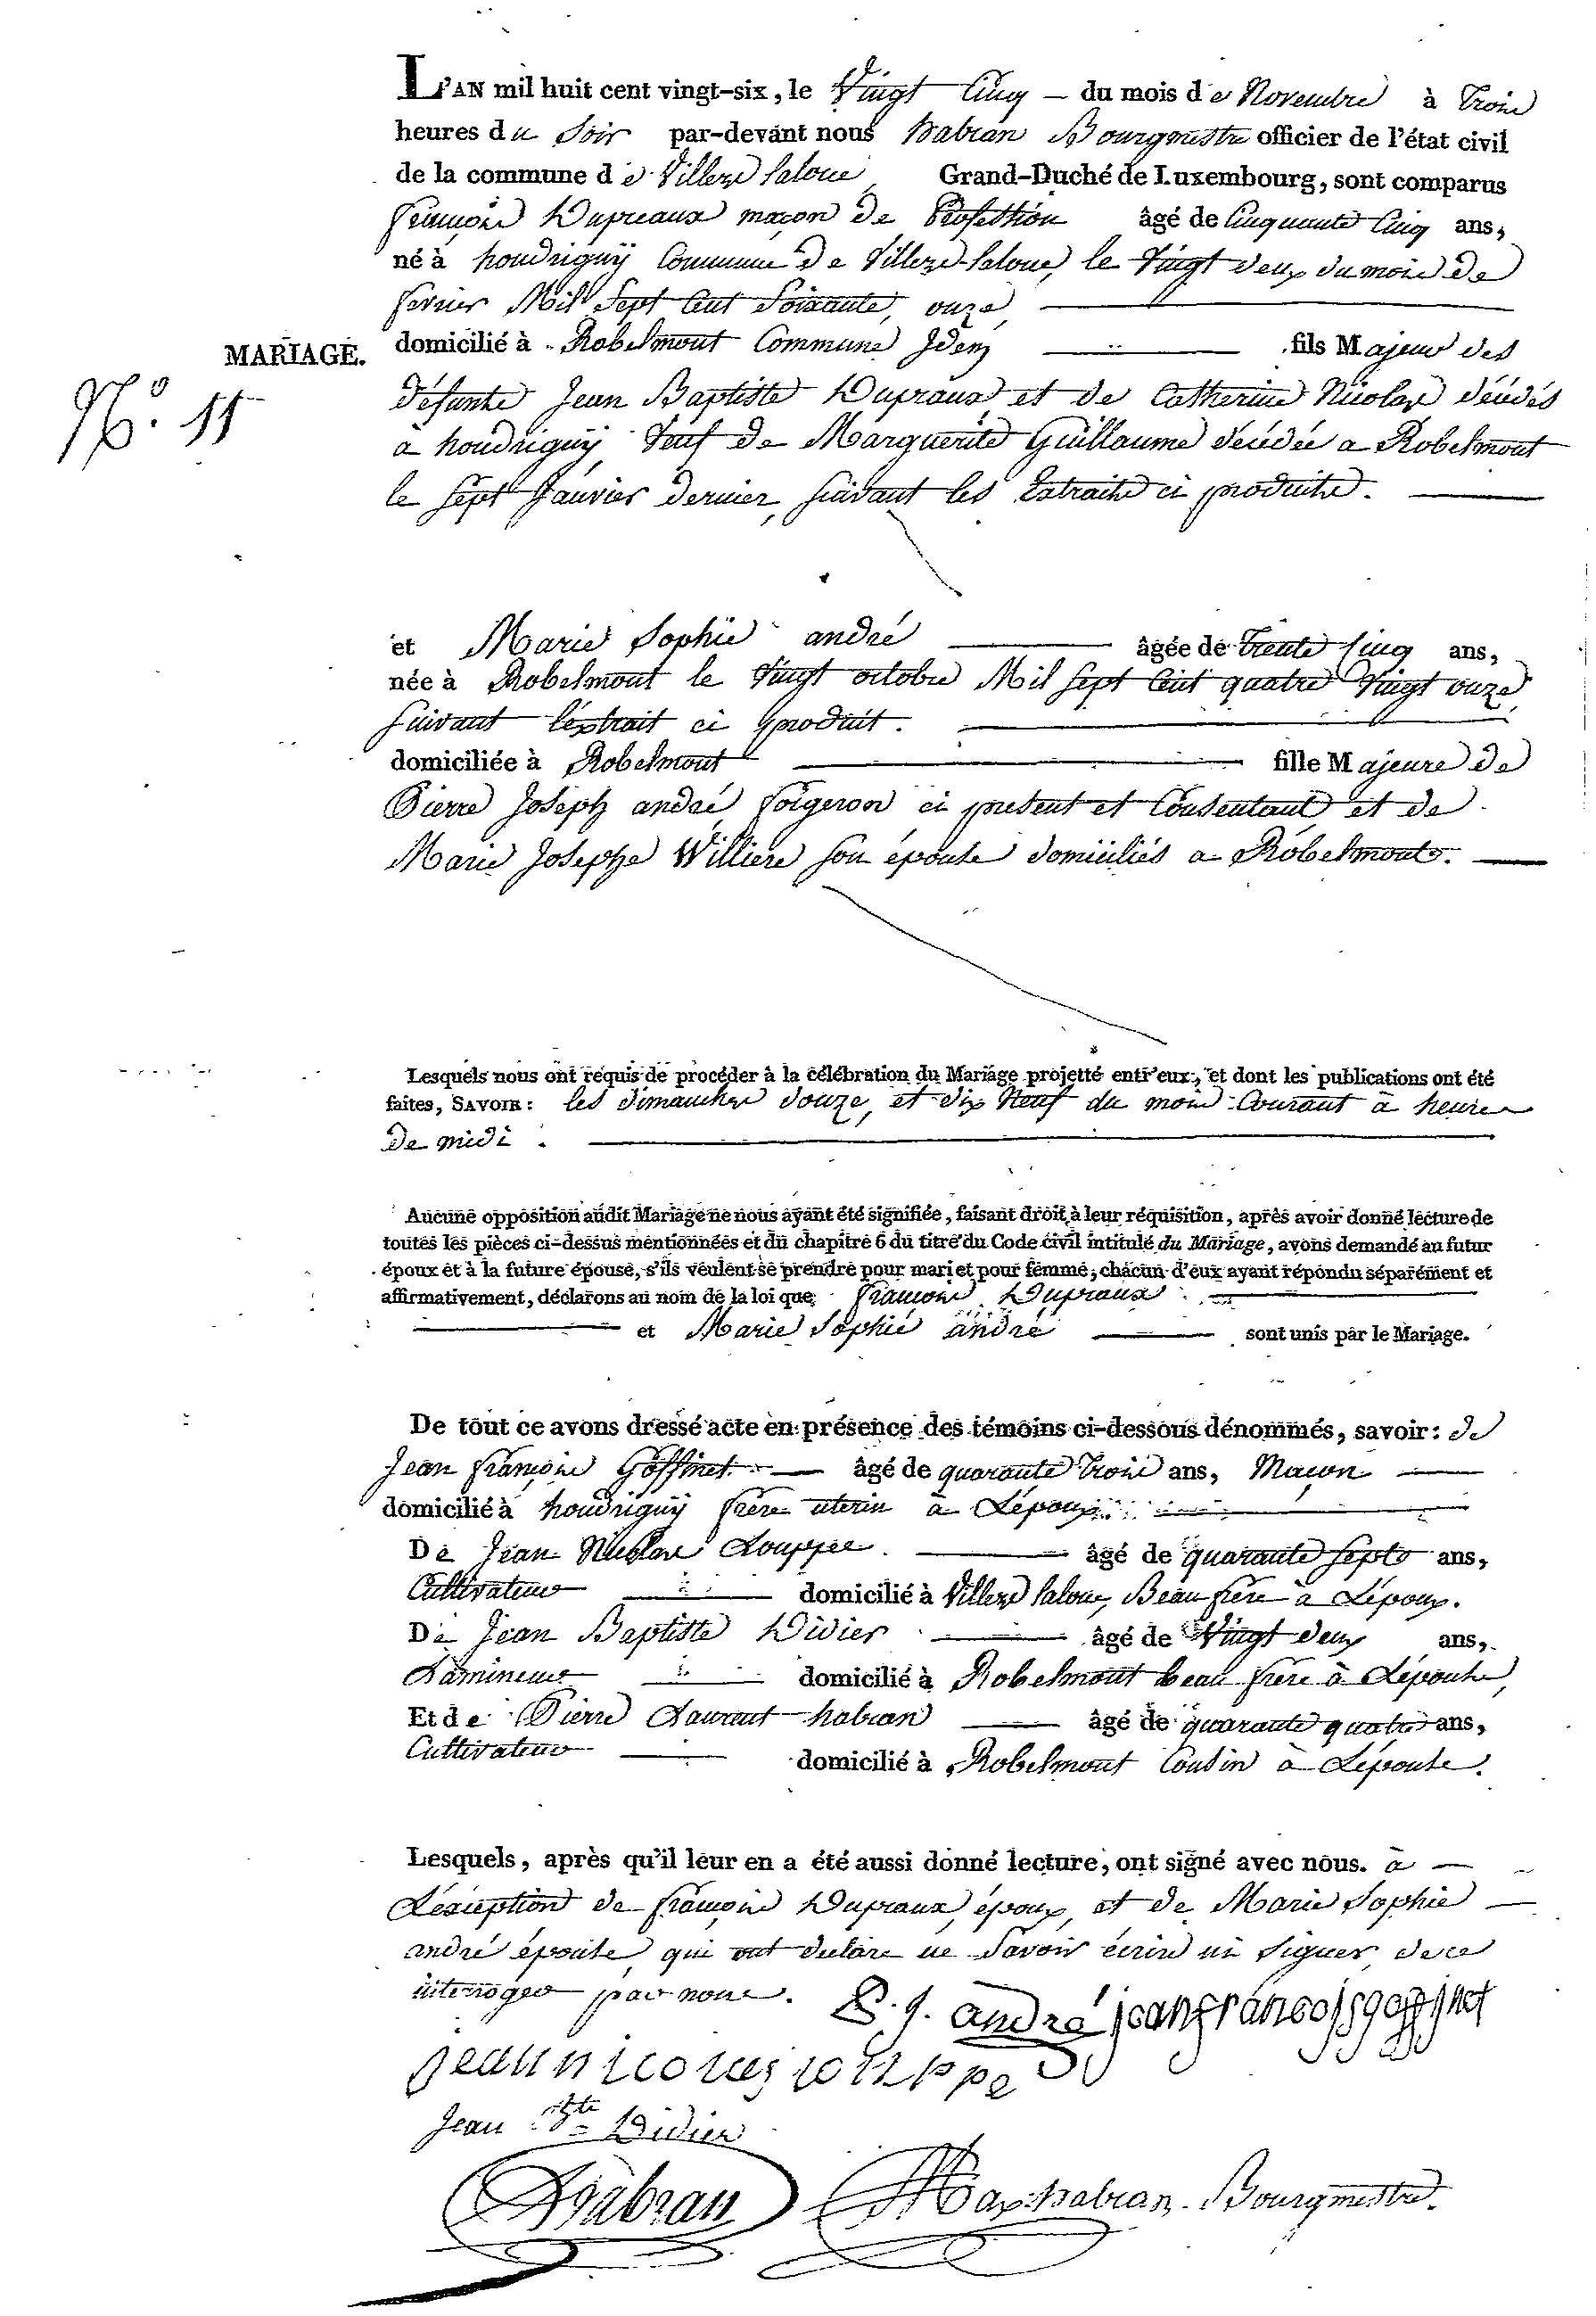 L'AN mil huit cent vingt-six, le Vingt Cinq du mois de Novembre à Trois
heures du Soir par-devant nous habran Bourgmestre officier de l'état civil
de la commune de Villers laloue, Grand-Duché de Luxembourg, sont comparus
françois Dupreaux maçon de Profession âgé de Cinquante Cinq ans,
né à houdrigny Commune de Villers-laloue, le Vingt deux du mois de
fevrier Mil Sept Cent Soixante, onze,
MARIAGE. domicilié à Robelmont Commune Idem fils Majeur des
N.º 11
défunts Jean Baptiste Dupraux et de Catherine Nicolas décédés
à houdrigny Veuf de Marguerite Guillaume décédée a Robelmont
le Sept Janvier dernier, suivant les Extraits ci produits.
et Marie Sophie andré âgée de Trente Cinq ans,
née à Robelmont le Vingt octobre Mil Sept Cent quatre Vingt onze,
suivant l'extrait ci produit.
domiciliée à Robelmont fille Majeure de
Pierre Joseph andré forgeron ci present et Consentant et de
Marie Josephe Williere son épouse domiciliés a Robelmont.
Lesquels nous ont requis de procéder à la célébration du Mariage projetté entr'eux, et dont les publications ont été
faites, SAVOIR: les dimanches douze, et dix Neuf du mois Courant à heures
de midi.
Aucune opposition audit Mariage ne nous ayant été signifiée, faisant droit à leur réquisition, après avoir donné lecture de
toutes les pièces ci-dessus mentionnées et du chapitre 6 du titre du Code civil intitulé du Mariage, avons demandé au futur
époux et à la future épouse, s'ils veulent se prendre pour mari et pour femme; chacun d'eux ayant répondu séparément et
affirmativement, déclarons au nom de la loi que françois Dupraux
et Marie Sophie andré sont unis par le Mariage.
De tout ce avons dressé acte en présence des témoins ci-dessous dénommés, savoir: de
Jean françois Goffinet âgé de quarante Trois ans, Maçon
domicilié à houdrigny frère uterin à L'époux.
De Jean Nicolas Louppe âgé de quarante Sept ans,
Cultivateur domicilié à Villers laloue, Beau frère à L'époux.
De Jean Baptiste Didier âgé de Vingt deux ans,
Lamineur domicilié à Robelmont beau frère à L'épouse,
Et de Pierre Laurant habran âgé de quarante quatre ans,
Cultivateur domicilié à Robelmont Cousin à L'épouse.
Lesquels, après qu'il leur en a été aussi donné lecture, ont signé avec nous. à
L'éxception de françois Dupraux, époux, et de Marie Sophie
andré épouse, qui ont declaré ne Savoir écrire ni Signer, de ce
interrogés par nous. P. J. andré jeanfrancojsgoffjnet
jean nicolas louppe
Jean Bte Didier
Habran Max habran Bourgmestre.